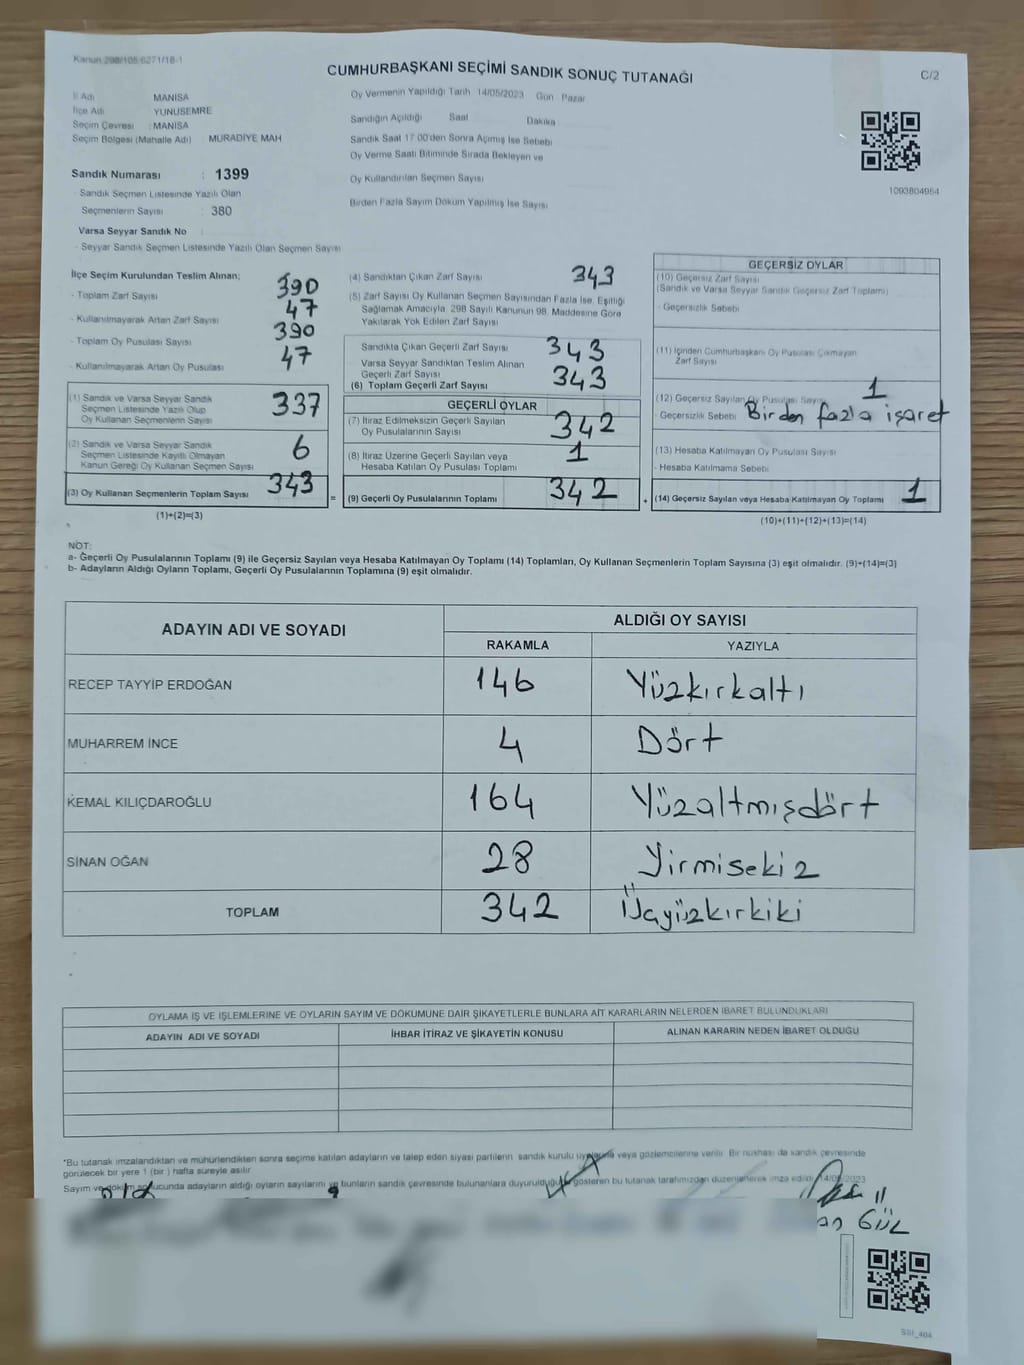 Kanun 298/105 6271/18-1
CUMHURBAŞKANI SEÇİMİ SANDIK SONUÇ TUTANAĞI
C/2
İl Adı MANİSA
İlçe Adı YUNUSEMRE
Seçim Çevresi : MANİSA
Seçim Bölgesi (Mahalle Adı) MURADİYE MAH
Oy Vermenin Yapıldığı Tarih 14/05/2023 Gün Pazar
Sandığın Açıldığı Saat Dakika
Sandık Saat 17:00'den Sonra Açılmış İse Sebebi
Oy Verme Saati Bitiminde Sırada Bekleyen ve
Oy Kullandırılan Seçmen Sayısı
Birden Fazla Sayım Döküm Yapılmış İse Sayısı
1093804964
Sandık Numarası : 1399
- Sandık Seçmen Listesinde Yazılı Olan
Seçmenlerin Sayısı : 380
Varsa Seyyar Sandık No
- Seyyar Sandık Seçmen Listesinde Yazılı Olan Seçmen Sayısı
İlçe Seçim Kurulundan Teslim Alınan;
- Toplam Zarf Sayısı 390
- Kullanılmayarak Artan Zarf Sayısı 47
- Toplam Oy Pusulası Sayısı 390
- Kullanılmayarak Artan Oy Pusulası 47
(1) Sandık ve Varsa Seyyar Sandık
Seçmen Listesinde Yazılı Olup
Oy Kullanan Seçmenlerin Sayısı 337
(2) Sandık ve Varsa Seyyar Sandık
Seçmen Listesinde Kayıtlı Olmayan
Kanun Gereği Oy Kullanan Seçmen Sayısı 6
(3) Oy Kullanan Seçmenlerin Toplam Sayısı 343
(1)+(2)=(3)
(4) Sandıktan Çıkan Zarf Sayısı 343
(5) Zarf Sayısı Oy Kullanan Seçmen Sayısından Fazla İse, Eşitliği
Sağlamak Amacıyla 298 Sayılı Kanunun 98. Maddesine Göre
Yakılarak Yok Edilen Zarf Sayısı
Sandıkta Çıkan Geçerli Zarf Sayısı 343
Varsa Seyyar Sandıktan Teslim Alınan
Geçerli Zarf Sayısı
(6) Toplam Geçerli Zarf Sayısı 343
GEÇERLİ OYLAR
(7) İtiraz Edilmeksizin Geçerli Sayılan
Oy Pusulalarının Sayısı 342
(8) İtiraz Üzerine Geçerli Sayılan veya
Hesaba Katılan Oy Pusulası Toplamı 1
= (9) Geçerli Oy Pusulalarının Toplamı 342
GEÇERSİZ OYLAR
(10) Geçersiz Zarf Sayısı
(Sandık ve Varsa Seyyar Sandık Geçersiz Zarf Toplamı)
- Geçersizlik Sebebi
(11) İçinden Cumhurbaşkanı Oy Pusulası Çıkmayan
Zarf Sayısı
(12) Geçersiz Sayılan Oy Pusulası Sayısı 1
- Geçersizlik Sebebi Birden fazla işaret
(13) Hesaba Katılmayan Oy Pusulası Sayısı
- Hesaba Katılmama Sebebi
+ (14) Geçersiz Sayılan veya Hesaba Katılmayan Oy Toplamı 1
(10)+(11)+(12)+(13)=(14)
NOT:
a- Geçerli Oy Pusulalarının Toplamı (9) ile Geçersiz Sayılan veya Hesaba Katılmayan Oy Toplamı (14) Toplamları, Oy Kullanan Seçmenlerin Toplam Sayısına (3) eşit olmalıdır. (9)+(14)=(3)
b- Adayların Aldığı Oyların Toplamı, Geçerli Oy Pusulalarının Toplamına (9) eşit olmalıdır.
ADAYIN ADI VE SOYADI ALDIĞI OY SAYISI
RAKAMLA YAZIYLA
RECEP TAYYİP ERDOĞAN 146 Yüzkırkaltı
MUHARREM İNCE 4 Dört
KEMAL KILIÇDAROĞLU 164 Yüzaltmışdört
SİNAN OĞAN 28 Yirmisekiz
TOPLAM 342 Üçyüzkırkiki
OYLAMA İŞ VE İŞLEMLERİNE VE OYLARIN SAYIM VE DÖKÜMÜNE DAİR ŞİKAYETLERLE BUNLARA AİT KARARLARIN NELERDEN İBARET BULUNDUKLARI
ADAYIN ADI VE SOYADI İHBAR İTİRAZ VE ŞİKAYETİN KONUSU ALINAN KARARIN NEDEN İBARET OLDUĞU
*Bu tutanak imzalandıktan ve mühürlendikten sonra seçime katılan adayların ve talep eden siyasi partilerin sandık kurulu üyelerine veya gözlemcilerine verilir. Bir nüshası da sandık çevresinde
görülecek bir yere 1 (bir) hafta süreyle asılır.
Sayım ve döküm sonucunda adayların aldığı oyların sayılarını ve bunların sandık çevresinde bulunanlara duyurulduğunu gösteren bu tutanak tarafımızdan düzenlenerek imza edildi. 14/05/2023
GÜL